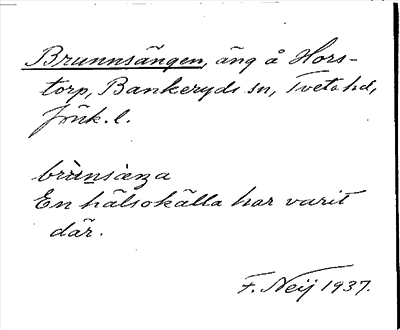 Brunnsängen, äng å Hors-
torp, Bankeryds sn, Tveta hd,
Jönk. l.
En hälsokälla har varit
där.
F. Neij 1937.